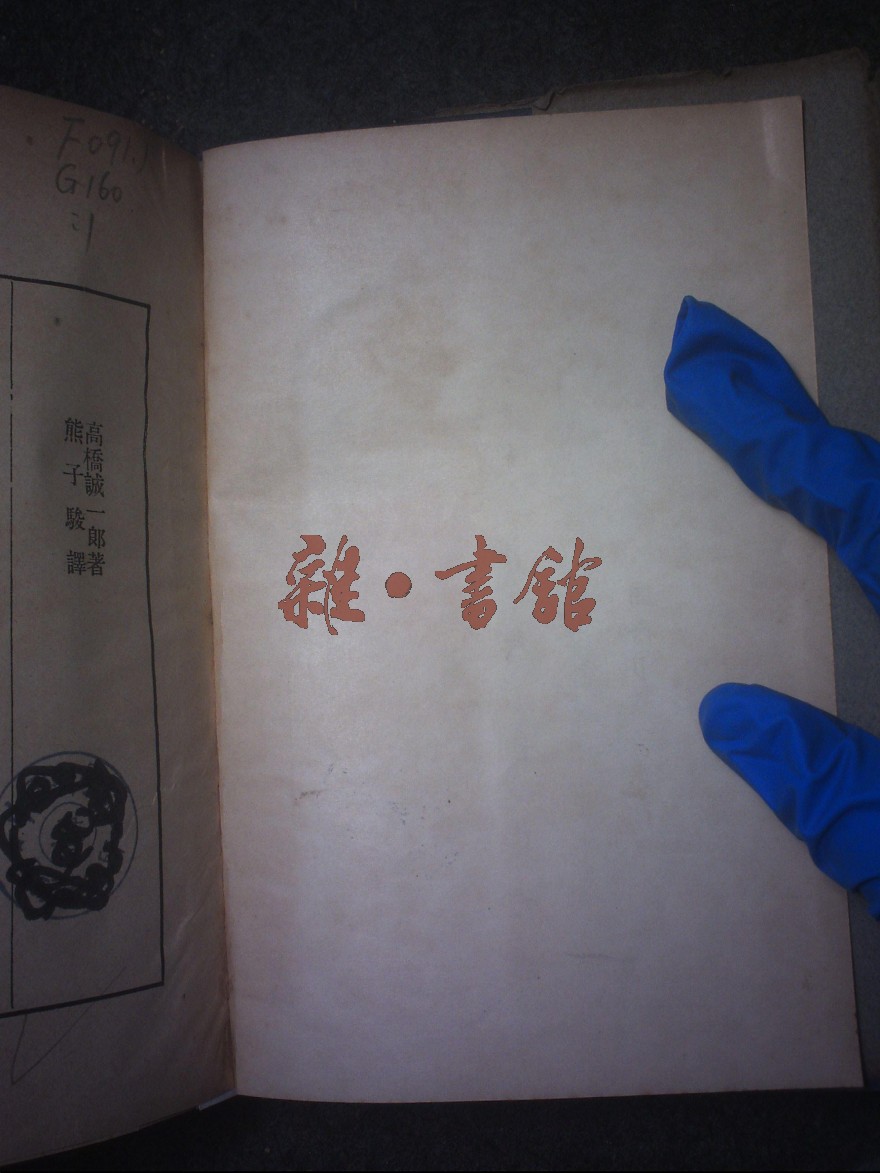 F091.
G160
:1
高橋誠一郎著
熊子駿譯
雜·書館